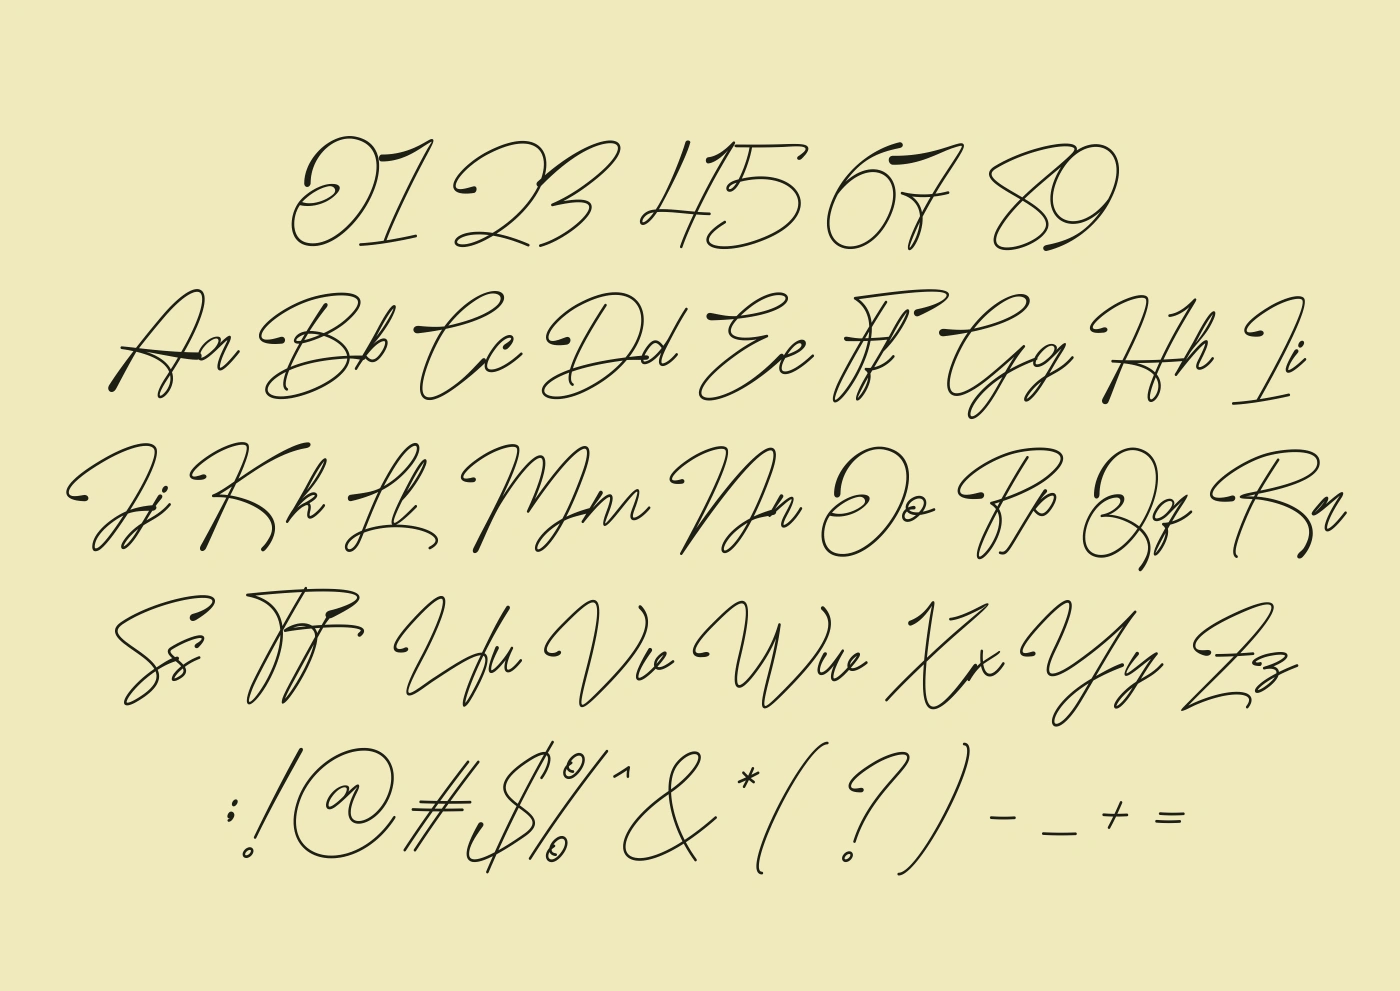 01 23 45 67 89
Aa Bb Cc Dd Ee Ff Gg Hh Ii
Jj Kk Ll Mm Nn Oo Pp Qq Rr
Ss Tt Uu Vv Ww Xx Yy Zz
;!@#$%^&*(?)-_+=